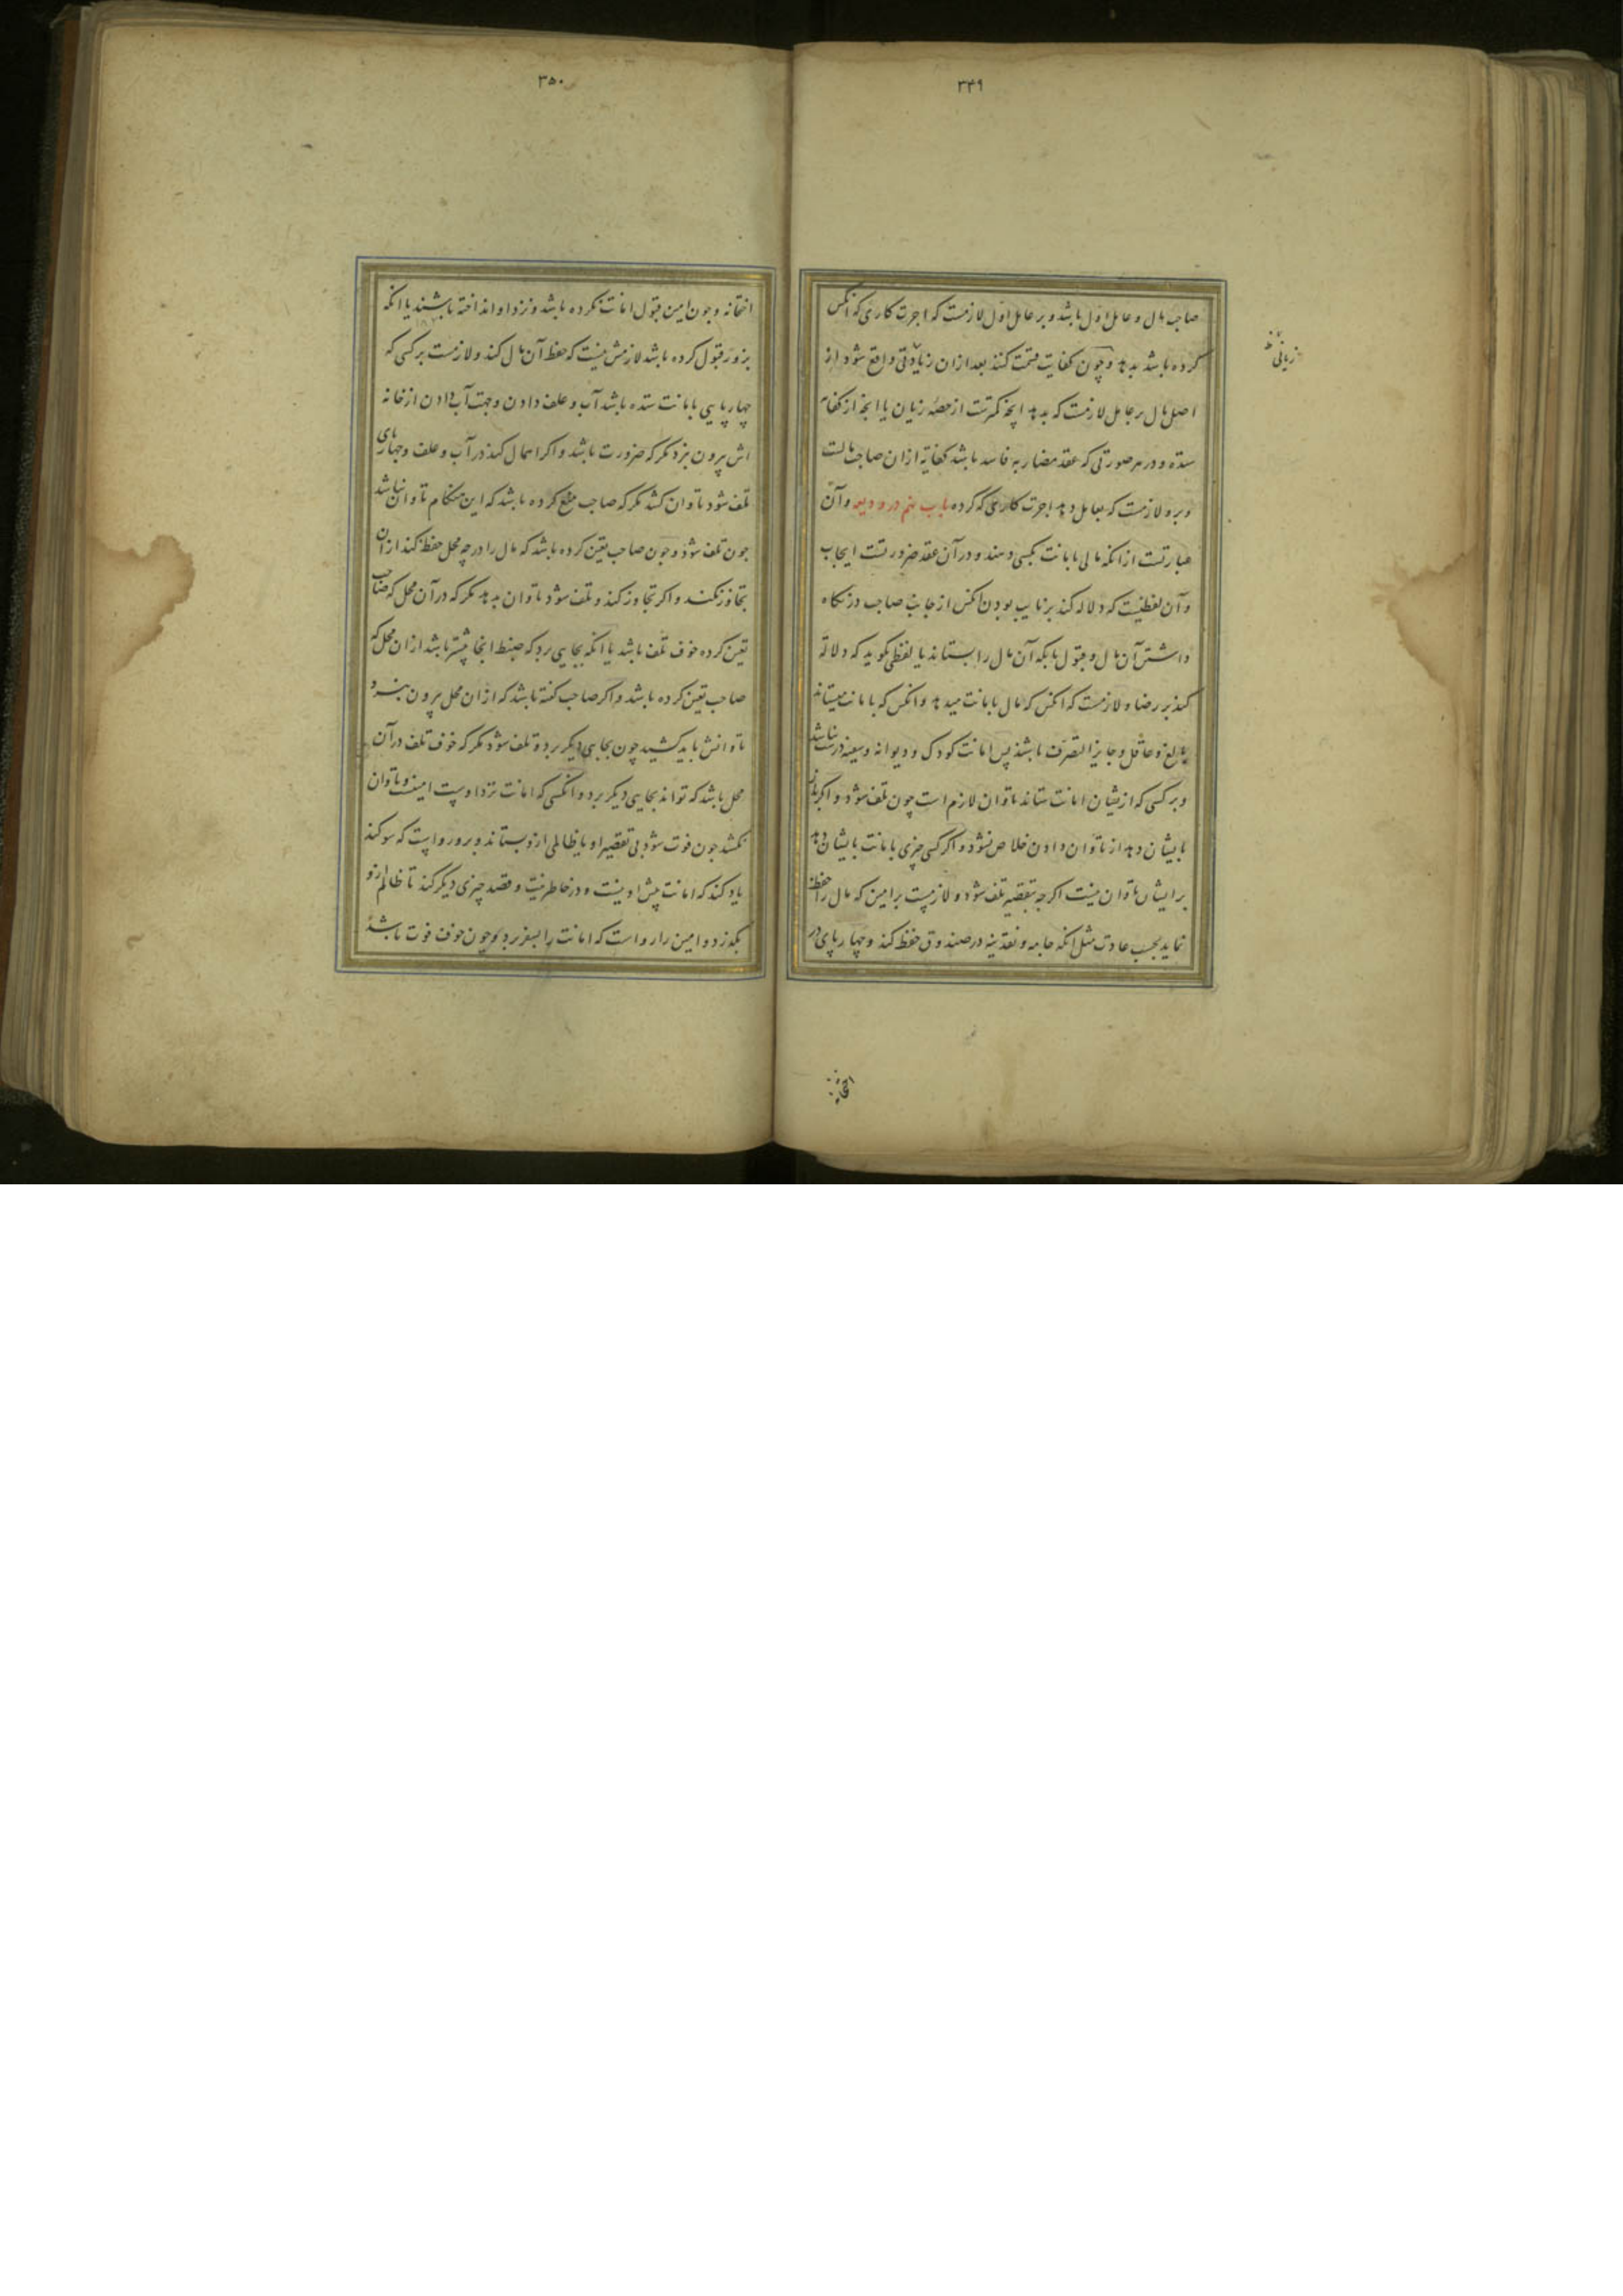 ۳۴۹
صاحب مال و عامل اول باشد و بر عامل اول لازمست که اجرت کاری که انکس
کرده باشد بدهد و چون کفایت قسمت کنند بعد ازان زیادتی واقع شود از
زیانی
اصل مال بر عامل لازمست که بدهد انچه کمترست از حصه زیان یا انچه از کفایة
ستده و در هر صورتی که عقد مضاربه فاسد باشد کفایة ازان صاحب مالست
و برو لازمست که بعامل دهد اجرت کاری که کرده باب نهم در ودیعه و آن
عبارتست از انکه مالی بامانت بکسی دهند و در آن عقد ضرورتست ایجاب
و آن لفظیست که دلالة کند بر نایب بودن انکس از جانب صاحب در نکاه
داشتن آن مال و قبول بانکه آن مال را بستاند یا لفظی کوید که دلالة
کند بر رضا و لازمست که انکس که مال بامانت میدهد و انکس که بامانت میستاند
بالغ و عاقل و جایز التصرف باشند پس امانت کودک و دیوانه و سفیه درست نباشد
و بر کسی که ازیشان امانت ستاند تاوان لازم است چون تلف شود و اکر باز
بایشان دهد از تاوان دادن خلاص نشود و اکر کسی چیزی بامانت بایشان دهد
بر ایشان تاوان نیست اکرچه بتقصیر تلف شود و لازمست بر امین که مال را حفظ
نماید بحسب عادت مثل انکه جامه و نقدینه در صندوق حفظ کند و چهارپای در
اختانه
۳۵۰
اختانه و چون امین قبول امانت نکرده باشد و نزد او انداخته باشند یا انکه
بزور قبول کرده باشد لازمش نیست که حفظ آن مال کند و لازمست بر کسی که
چهارپایی بامانت ستده باشد آب و علف دادن و جهت آب دادن از خانه
اش بیرون نبرد مکر که ضرورت باشد و اکر اهمال کند در آب و علف و چهارپای
تلف شود تاوان کشد مکر که صاحب منع کرده باشد که این هنکام تاوان نباشد
چون تلف شود و چون صاحب تعین کرده باشد که مال را در چه محل حفظ کند ازان
تجاوز نکند و اکر تجاوز کند و تلف شود تاوان بدهد مکر که در آن محل که صاحب
تعین کرده خوف تلف باشد یا انکه بجایی برد که ضبط انجا بیشتر باشد ازان محل که
صاحب تعین کرده باشد و اکر صاحب کفته باشد که ازان محل بیرون نبرد
تاوانش باید کشید چون بجایی دیکر برد و تلف شود مکر که خوف تلف در آن
محل باشد که تواند بجایی دیکر برد و انکسی که امانت نزد اوست امینست و تاوان
نکشد چون فوت شود بی تقصیر او یا ظالمی ازو بستاند و برو رواست که سوکند
یاد کند که امانت پیش او نیست و در خاطر نیت و قصد چیزی دیکر کند تا ظالم ازو
بکذرد و امین را رواست که امانت را بسفر برد چون خوف فوت باشد